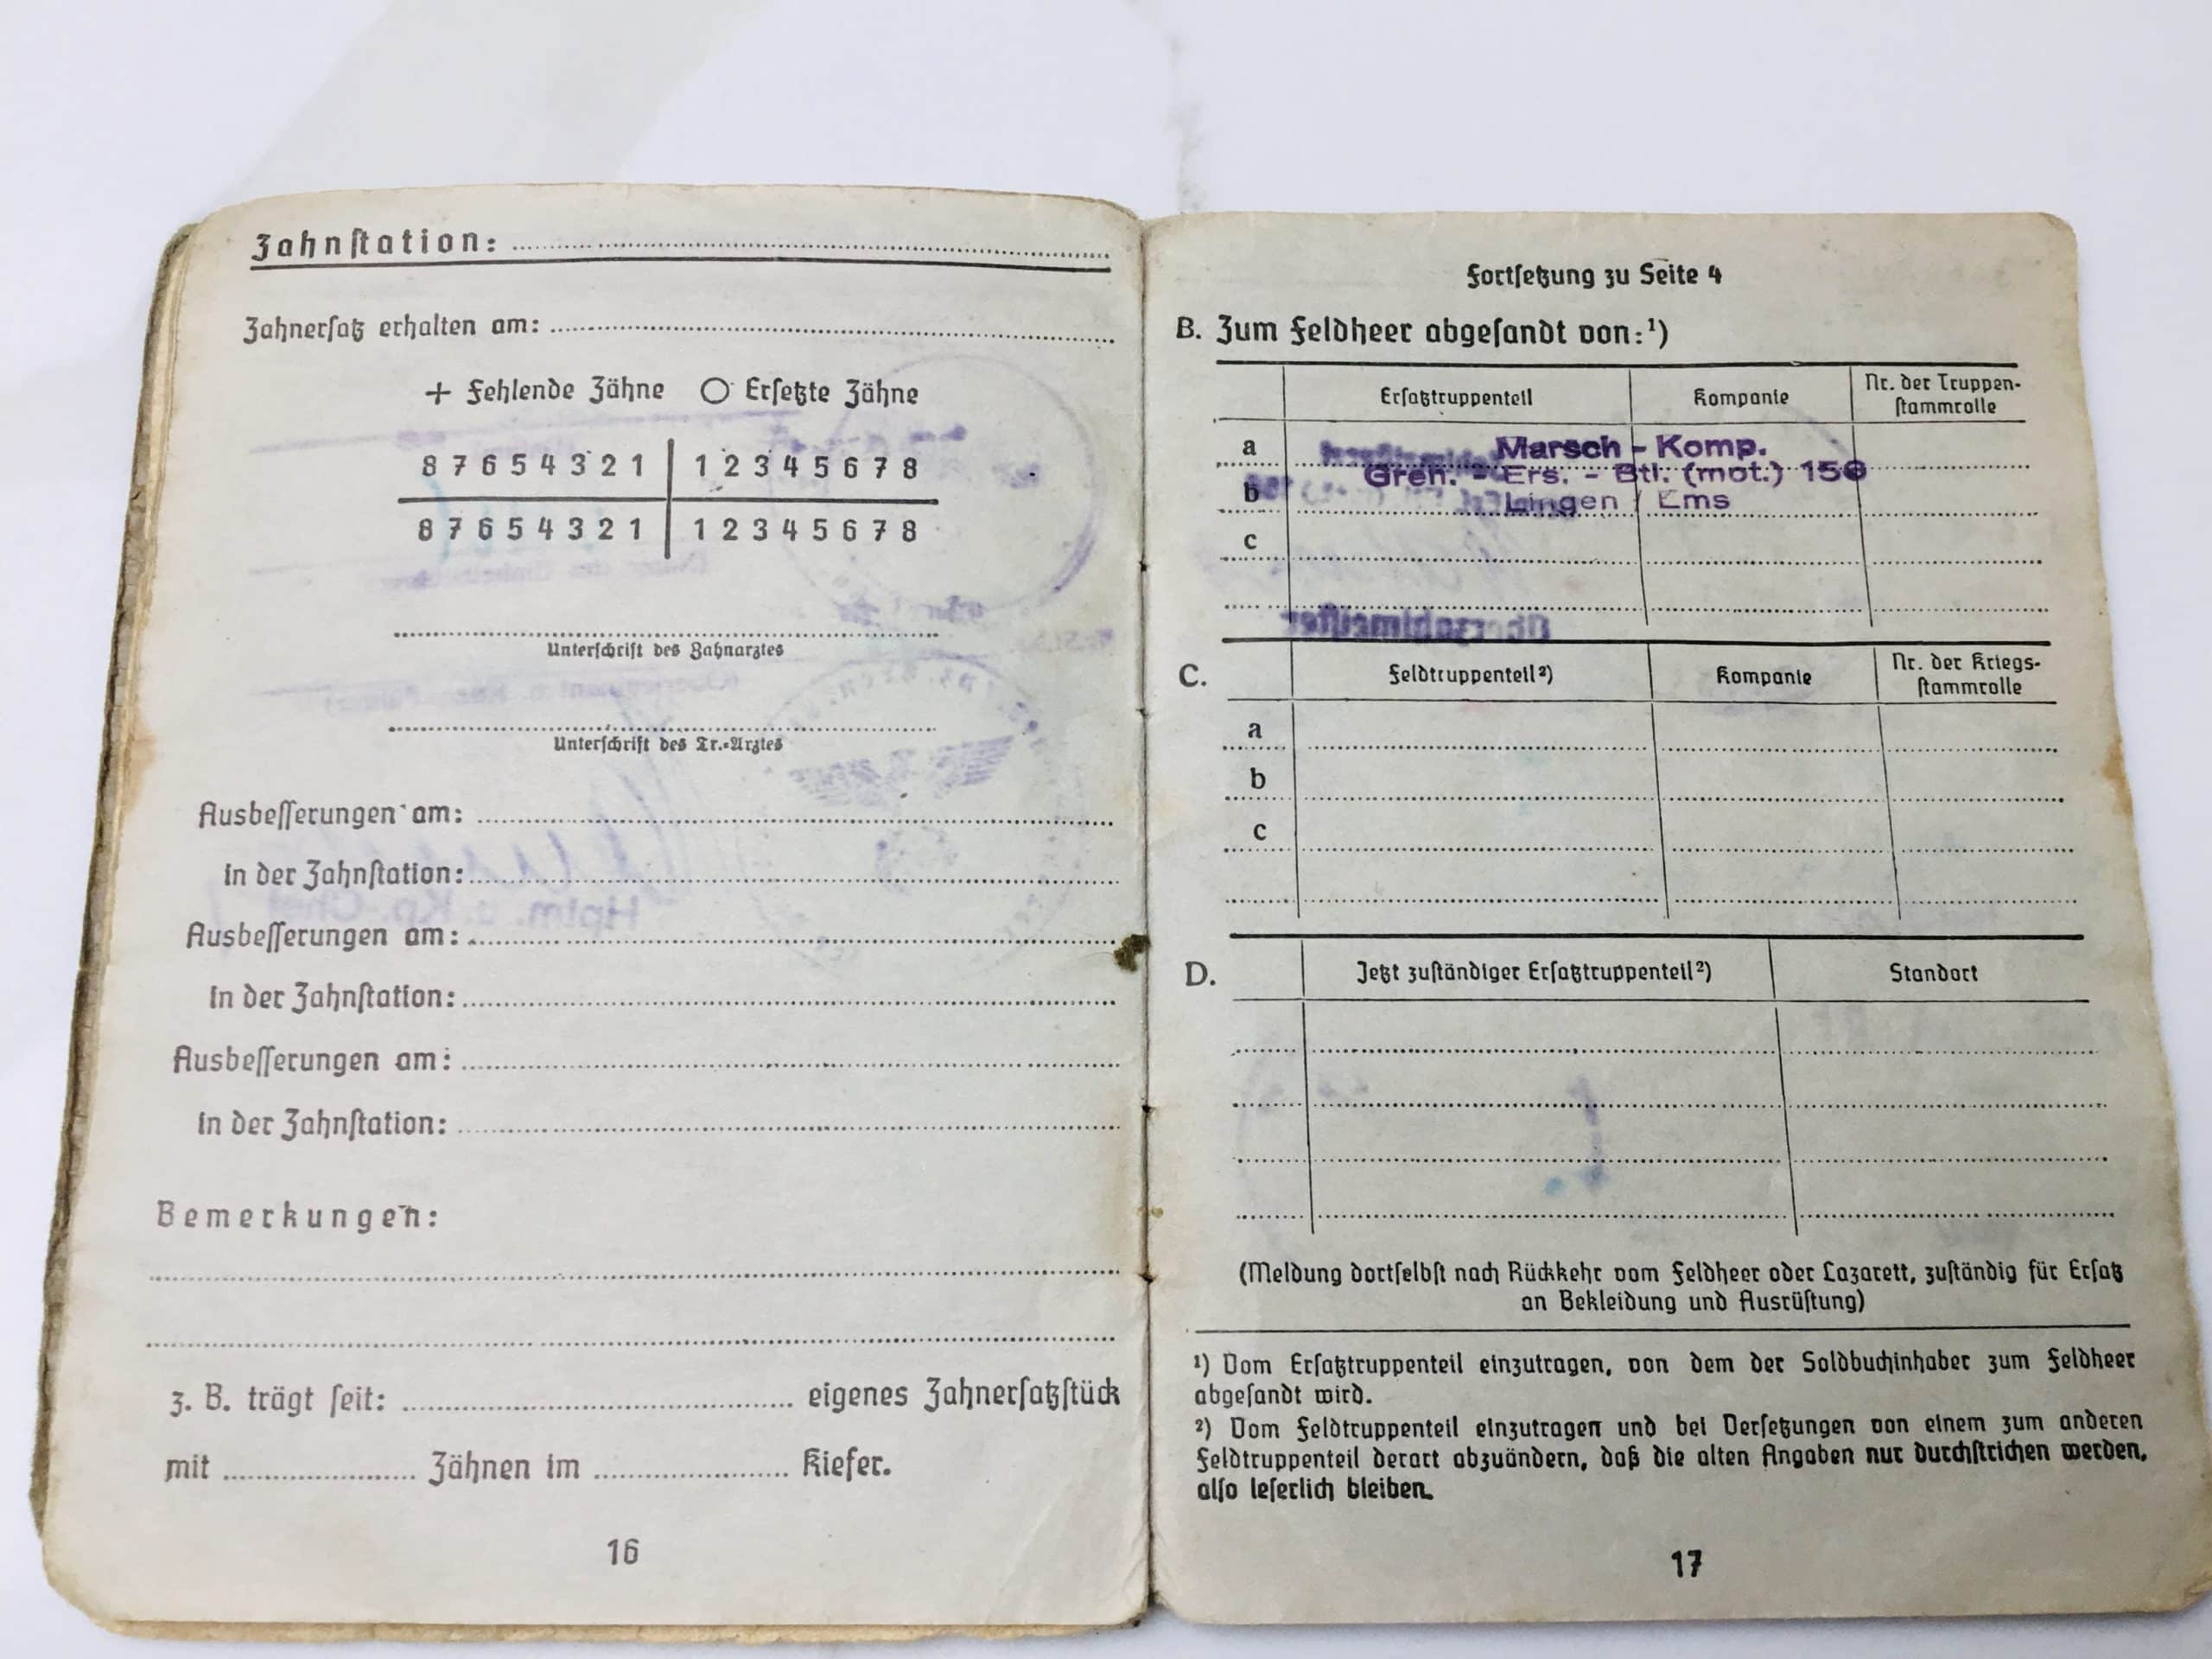 Zahnstation:
Zahnersatz erhalten am:
+ Fehlende Zähne O Ersetzte Zähne
8 7 6 5 4 3 2 1 | 1 2 3 4 5 6 7 8
8 7 6 5 4 3 2 1 | 1 2 3 4 5 6 7 8
Unterschrift des Zahnarztes
Unterschrift des Tr.-Arztes
Ausbesserungen am:
In der Zahnstation:
Ausbesserungen am:
In der Zahnstation:
Ausbesserungen am:
In der Zahnstation:
Bemerkungen:
z. B. trägt seit: eigenes Zahnersatzstück
mit Zähnen im Kiefer.
16
Fortsetzung zu Seite 4
B. Zum Feldheer abgesandt von:¹)
Ersatztruppenteil Kompanie Nr. der Truppen-
stammrolle
a Marsch - Komp.
Gren. - Ers. - Btl. (mot.) 156
b Lingen / Ems
c
Oberzahlmeister
C. Feldtruppenteil²) Kompanie Nr. der Kriegs-
stammrolle
a
b
c
D. Jetzt zuständiger Ersatztruppenteil²) Standort
(Meldung dortselbst nach Rückkehr vom Feldheer oder Lazarett, zuständig für Ersatz
an Bekleidung und Ausrüstung)
¹) Vom Ersatztruppenteil einzutragen, von dem der Soldbuchinhaber zum Feldheer
abgesandt wird.
²) Vom Feldtruppenteil einzutragen und bei Versetzungen von einem zum anderen
Feldtruppenteil derart abzuändern, daß die alten Angaben nur durchstrichen werden,
also leserlich bleiben.
17